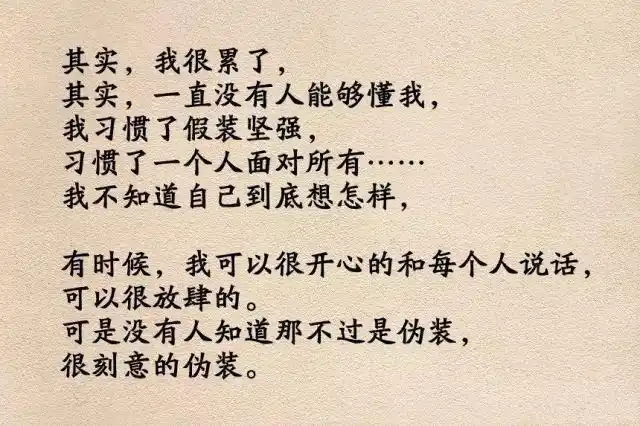 其实，我很累了，
其实，一直没有人能够懂我，
我习惯了假装坚强，
习惯了一个人面对所有……
我不知道自己到底想怎样，
有时候，我可以很开心的和每个人说话，
可以很放肆的。
可是没有人知道那不过是伪装，
很刻意的伪装。